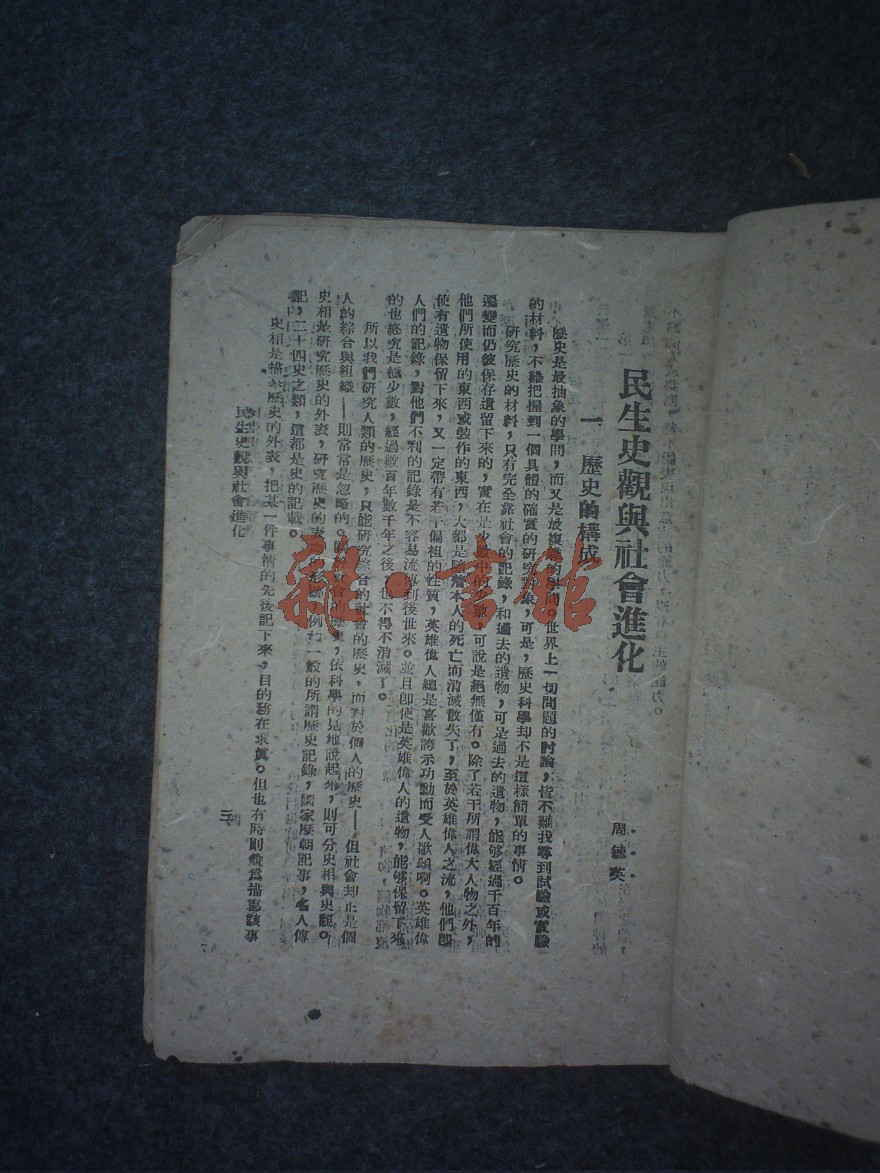 民生史觀與社會進化
周毓英
一 歷史的構成
歷史是最抽象的學問,而又是最複雜的學問。世界上一切問題的討論,皆不難找尋到試驗或實驗
的材料,不難把握到一個具體的確實的研究對象,可是,歷史科學却不是這樣簡單的事情。
研究歷史的材料,只有完全靠社會的記錄,和過去的遺物,可是過去的遺物,能够經過千百年的
遷變而仍被保存遺留下來的,實在是少數中的少數,可說是絕無僅有。除了若干所謂偉大人物之外,
他們所使用的東西或裝作的東西,大都是隨着本人的死亡而消滅散失了,至於英雄偉人之流,他們卽
使有遺物保留下來,又一定帶有若干偏袒的性質,英雄偉人總是喜歡誇示功勳而受人歌頌啊。英雄偉
人們的記錄,對他們不利的記錄是不容易流傳到後世來。並且卽使是英雄偉人的遺物,能够保留下來
的也終究是極少數,經過數百年數千年之後,也不得不消滅了。
所以我們研究人類的歷史,只能研究綜合的社會的歷史,而對於個人的歷史——但社會却正是個
人的綜合與組織——則常常是忽略的。
社會的歷史,依科學的見地說起來,則可分史相與史觀。
史相是研究歷史的外表,研究歷史的表
例如一般的所謂歷史記錄,國家歷朝記事,名人傳
記,二十四史之類,這都是史的記載。
史相是描寫歷史的外表,把某一件事情的先後記下來,目的務在求眞。但也有時則數為描寫該事
民生史觀與社會進化
雜·書館